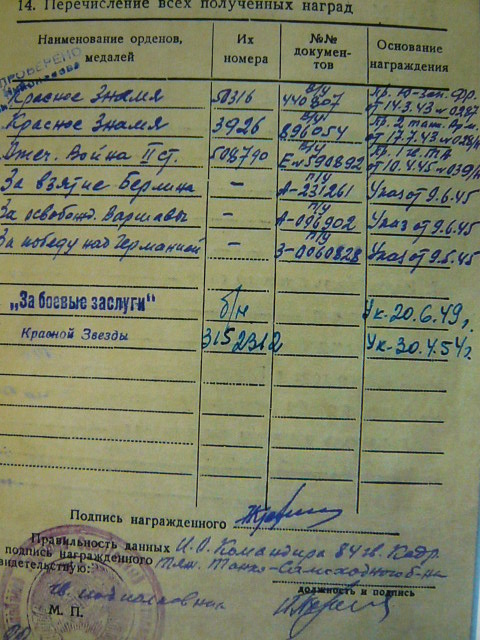 14. Перечисление всех полученных наград
Наименование орденов, медалей
Их номера
№№ документов
Основание награждения
ПРОВЕРЕНО
Красное Знамя 50316 в/у 440807 Пр. Ю-Зап. фр. от 14.3.43
Красное Знамя 3926 в/у 896054 от 17.7.43
Отеч. Война II ст. 508790 в/у Е № 590892 от 10.4.45 № 039/н
За взятие Берлина — А-231261 Указ от 9.6.45
За освобожд. Варшавы — п/у А-096902 Указ от 9.6.45
За победу над Германией — п/у З-0060828 Указ от 9.5.45
„За боевые заслуги“ б/н Ук-20.6.49 г.
Красной Звезды 3152312 Ук-30.4.54 г.
Подпись награжденного
Правильность данных И.О. Командира 84 гв. Кадр.
подпись награжденного тяж. Танко-Самоходного б-на
свидетельствую:
должность и подпись
гв. подполковник
М. П.